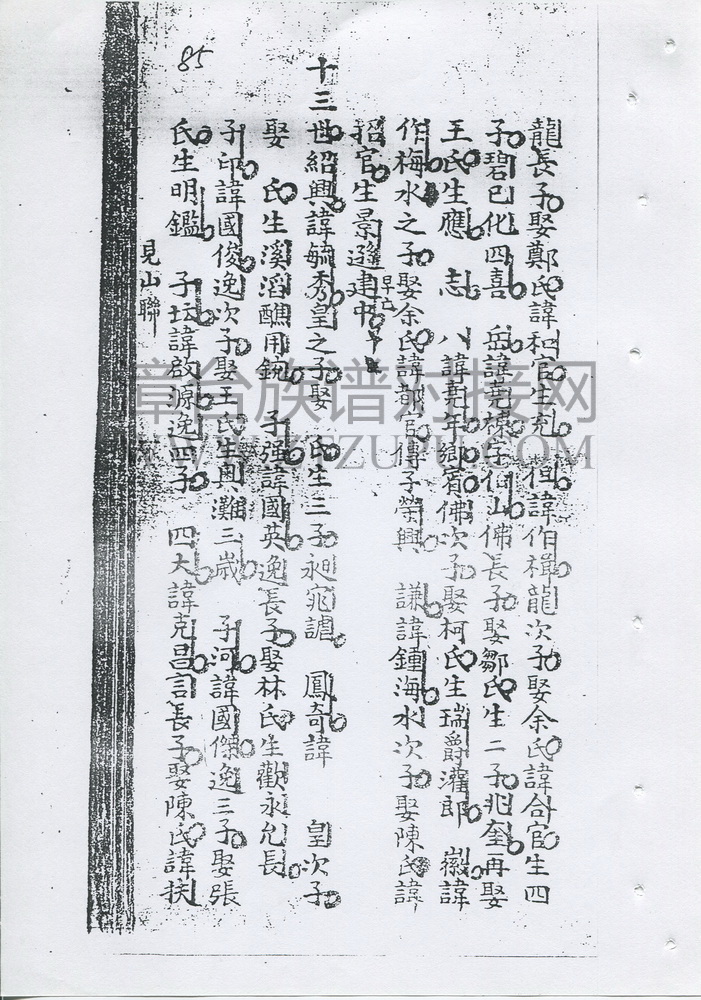 85
龍長子娶鄭氏諱和官生充 但諱作楫龍次子娶余氏諱合官生四
子碧巳化四喜 岳諱堯棟字伯山佛長子娶鄒氏生二子兆奎再娶
王氏生應 志 八諱堯年鄉賓佛次子娶柯氏生瑞爵灌郎 嶽諱
作梅水之子娶余氏諱都官傳子榮興 謙諱鍾海水次子娶陳氏諱
招官生景遜建中早亡
十三世紹興諱毓秀皇之子娶 氏生三子昶 鳳奇諱 皇次子
娶 氏生溪滔醮用銳 子强諱國英逸長子娶林氏生歡永允長
子印諱國俊逸次子娶王氏生輿灘三歲 子河諱國傑逸三子娶張
氏生明鑑 子坛諱啟源逸四子 四大諱克昌言長子娶陳氏諱扶
見山聯
章台族谱对接网
WWW.ZTZUPU.COM